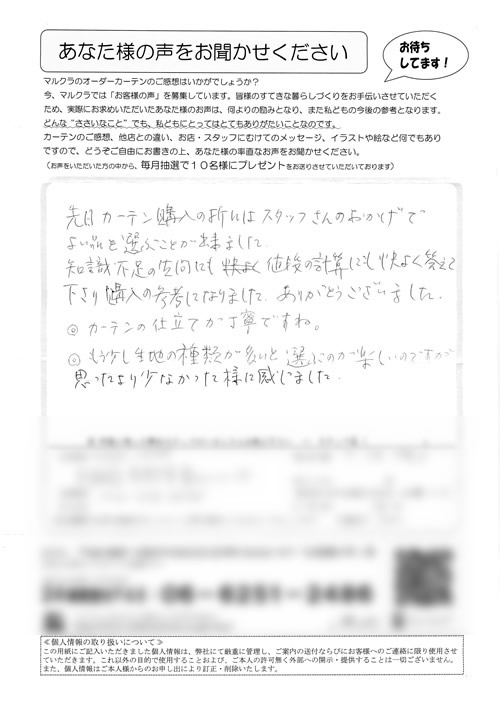 あなた様の声をお聞かせください
お待ち
してます！
マルクラのオーダーカーテンのご感想はいかがでしょうか？
今、マルクラでは「お客様の声」を募集しています。皆様のすてきな暮らしづくりをお手伝いさせていただく
ため、実際にお求めいただいたあなた様のお声は、何よりの励みとなり、また私どもの今後の参考となります。
どんな“ささいなこと”でも、私どもにとってはとてもありがたいことなのです。
カーテンのご感想、他店との違い、お店・スタッフにむけてのメッセージ、イラストや絵など何でもあり
ですので、どうぞご自由にお書きの上、あなた様の率直なお声をお聞かせください。
（お声をいただいた方の中から、毎月抽選で１０名様にプレゼントをお送りさせていただいております）
先日カーテン購入の折にはスタッフさんのおかげで
よい品を選ぶことが出来ました。
知識不足の質問にも快よく 値段の計算にも快よく答えて
下さり購入の参考になりました。ありがとうございました。
◎ カーテンの仕立てが丁寧ですね。
◎ もう少し生地の種類が多いと選ぶのが楽しいのですが
思ったより少なかった様に感じました。
≪個人情報の取り扱いについて≫
この用紙にご記入いただきました個人情報は、弊社にて厳重に管理し、ご案内の送付ならびにお客様へのご連絡に限り使用させ
ていただきます。これ以外の目的で使用することおよび、ご本人の許可無く外部への開示・提供することは一切ございません。
また、個人情報はご本人様からのお申し出により訂正・削除いたします。